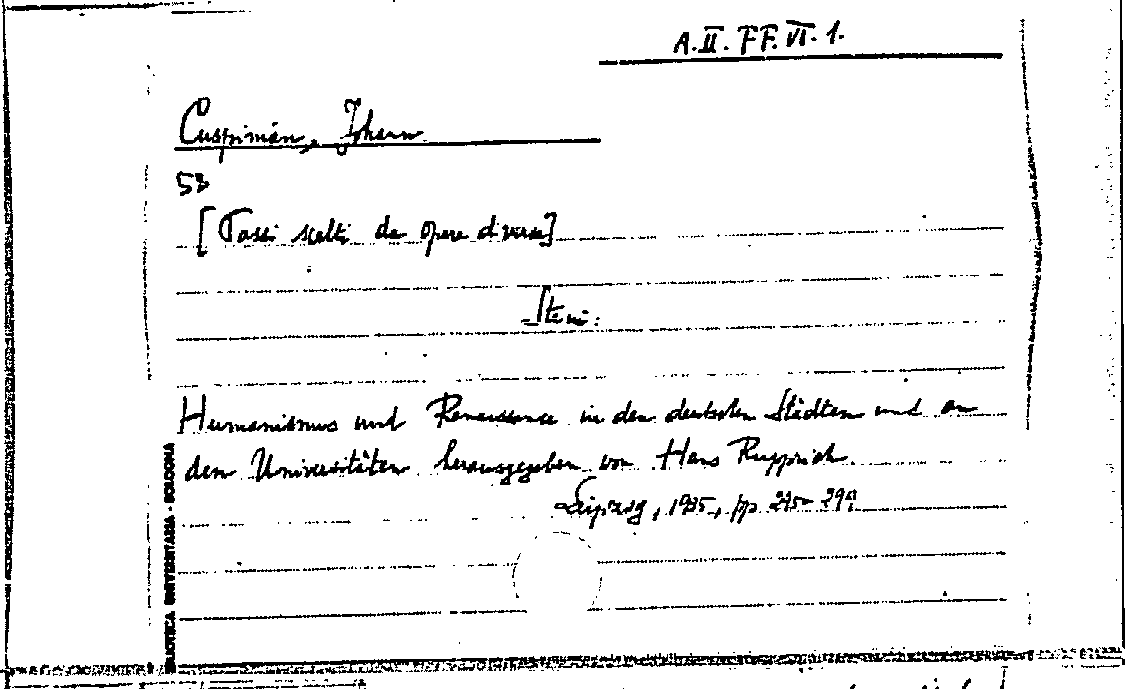 A.II.FF.VI.1.
Cuspinian, Johann
53
[Passi scelti da opere diverse]
Sta in:
Humanismus und Renaissance in den deutschen Städten und an
den Universitäten herausgegeben von Hans Rupprich.
Leipzig, 1935, pp. 295-299
BIBLIOTECA UNIVERSITARIA - BOLOGNA